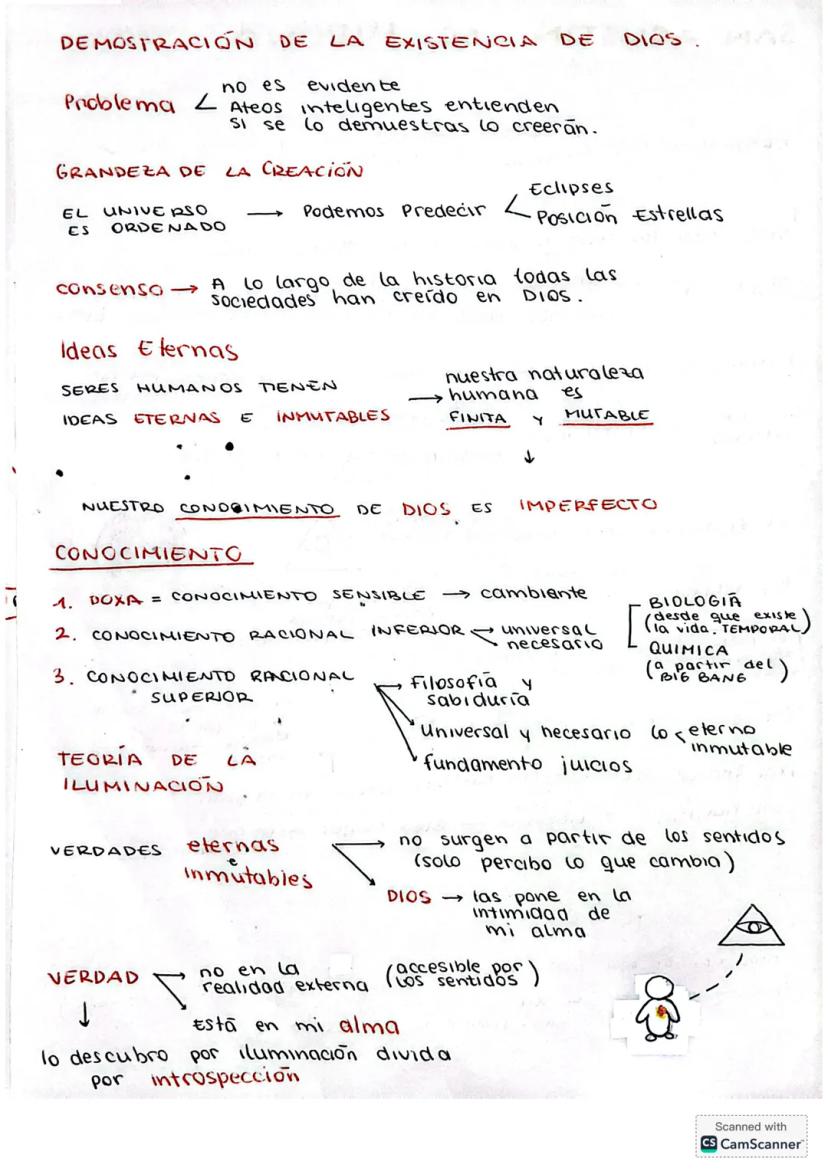 DEMOSTRACIÓN DE LA EXISTENCIA DE DIOS.
Problema < no es evidente
Ateos inteligentes entienden
si se lo demuestras lo creerán.
GRANDEZA DE LA CREACIÓN
EL UNIVERSO ES ORDENADO → Podemos Predecir < Eclipses
Posición Estrellas
consenso → A lo largo de la historia todas las
sociedades han creído en DIOS.
Ideas Eternas
SERES HUMANOS TIENEN
IDEAS ETERNAS E INMUTABLES
→ nuestra naturaleza
humana es
FINITA Y MUTABLE
↓
NUESTRO CONOCIMIENTO DE DIOS ES IMPERFECTO
CONOCIMIENTO
1. DOXA = CONOCIMIENTO SENSIBLE → cambiante
2. CONOCIMIENTO RACIONAL INFERIOR → universal
necesario
BIOLOGIÁ
(desde que existe
la vida. TEMPORAL)
QUIMICA
(a partir del
BIG BANG)
3. CONOCIMIENTO RACIONAL
SUPERIOR
→ Filosofía y
sabiduría
universal y necesario lo < eterno
inmutable
fundamento juicios
TEORÍA DE LA
ILUMINACIÓN
VERDADES eternas
e
inmutables
→ no surgen a partir de los sentidos
(solo percibo lo que cambia)
DIOS → las pone en la
intimidad de
mi alma
VERDAD → no en la
realidad externa (accesible por
los sentidos)
Está en mi alma
↓
lo descubro por iluminación divida
por introspección
Scanned with
CS CamScanner